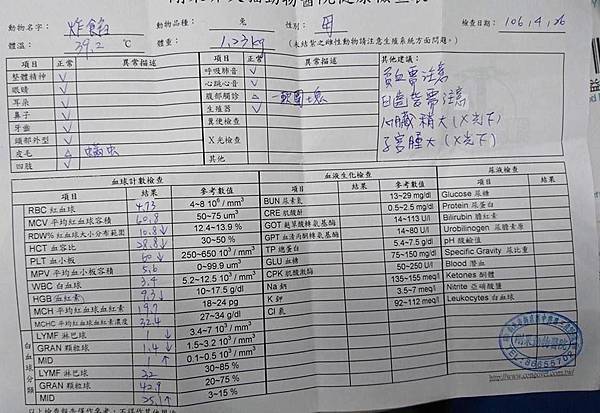 動物名字: 炸餛飩 動物品種: 兔 性別: 母 檢查日期: 106,4,26
體溫: 39.2 ℃ 體重: 1.23kg (未結紮之雌性動物請注意生殖系統方面問題。)
項目 正常 異常描述 項目 正常 異常描述 其他建議:
整體精神 V 呼吸肺音 V 貧血需注意
眼睛 V 心跳心音 V 臼齒需注意
耳朵 V 腹部觸診 △ 一軟團塊 心臟稍大(X光下)
鼻子 V 生殖器 V 子宮腫大(X光下)
牙齒 V 糞便檢查
頭部外型 V X光檢查
皮毛 △ 蟎蟲 其他
四肢 V
血球計數檢查 血液生化檢查 尿液檢查
項目 結果 參考數值 項目 結果 參考數值 項目 結果
RBC 紅血球 4.73 4~8 10⁶ /mm³ BUN 尿素氮 13~29 mg/dl Glucose 尿糖
MCV 平均紅血球容積 60.8 50~75 um³ CRE 肌酸酐 0.5~2.5 mg/dl Protein 尿蛋白
RDW% 紅血球大小分布範圍 10.8↓ 12.4~13.9 % GOT 麩草酸轉氨基酶 14~113 U/l Bilirubin 膽紅素
HCT 血容比 28.8↓ 30~50 % GPT 血清丙酮轉氨基酶 14~80 U/l Urobilinogen 尿膽素原
PLT 血小板 60↓ 250~650 10³ / mm³ TP 總蛋白 5.4~7.5 g/dl pH 酸鹼值
MPV 平均血小板容積 5.6 0~99.9 um³ GLU 血糖 75~150 mg/dl Specific Gravity 尿比重
WBC 白血球 3.4 5.2~12.5 10³ / mm³ CPK 肌酸激酶 50~250 U/l Blood 潛血
HGB 血紅素 9.3↓ 10~17.5 g/dl Na 鈉 135~155 meq/l Ketones 酮體
MCH 平均紅血球血紅素 19.7 18~24 pg K 鉀 3.5~7 meq/l Nitrite 亞硝酸鹽
MCHC 平均紅血球血紅素濃度 32.4 27~34 g/dl Cl 氯 92~112 meq/l Leukocytes 白血球
白血球分類
LYMF 淋巴球 ↓ 3.4~7 10³ / mm³
GRAN 顆粒球 1.4↓ 1.5~3.2 10³ / mm³
MID 1↑ 0.1~0.5 10³ / mm³
LYMF 淋巴球 32 30~85 %
GRAN 顆粒球 42.9 20~75 %
MID 25.1↑ 3~15 %
TEL:86655702